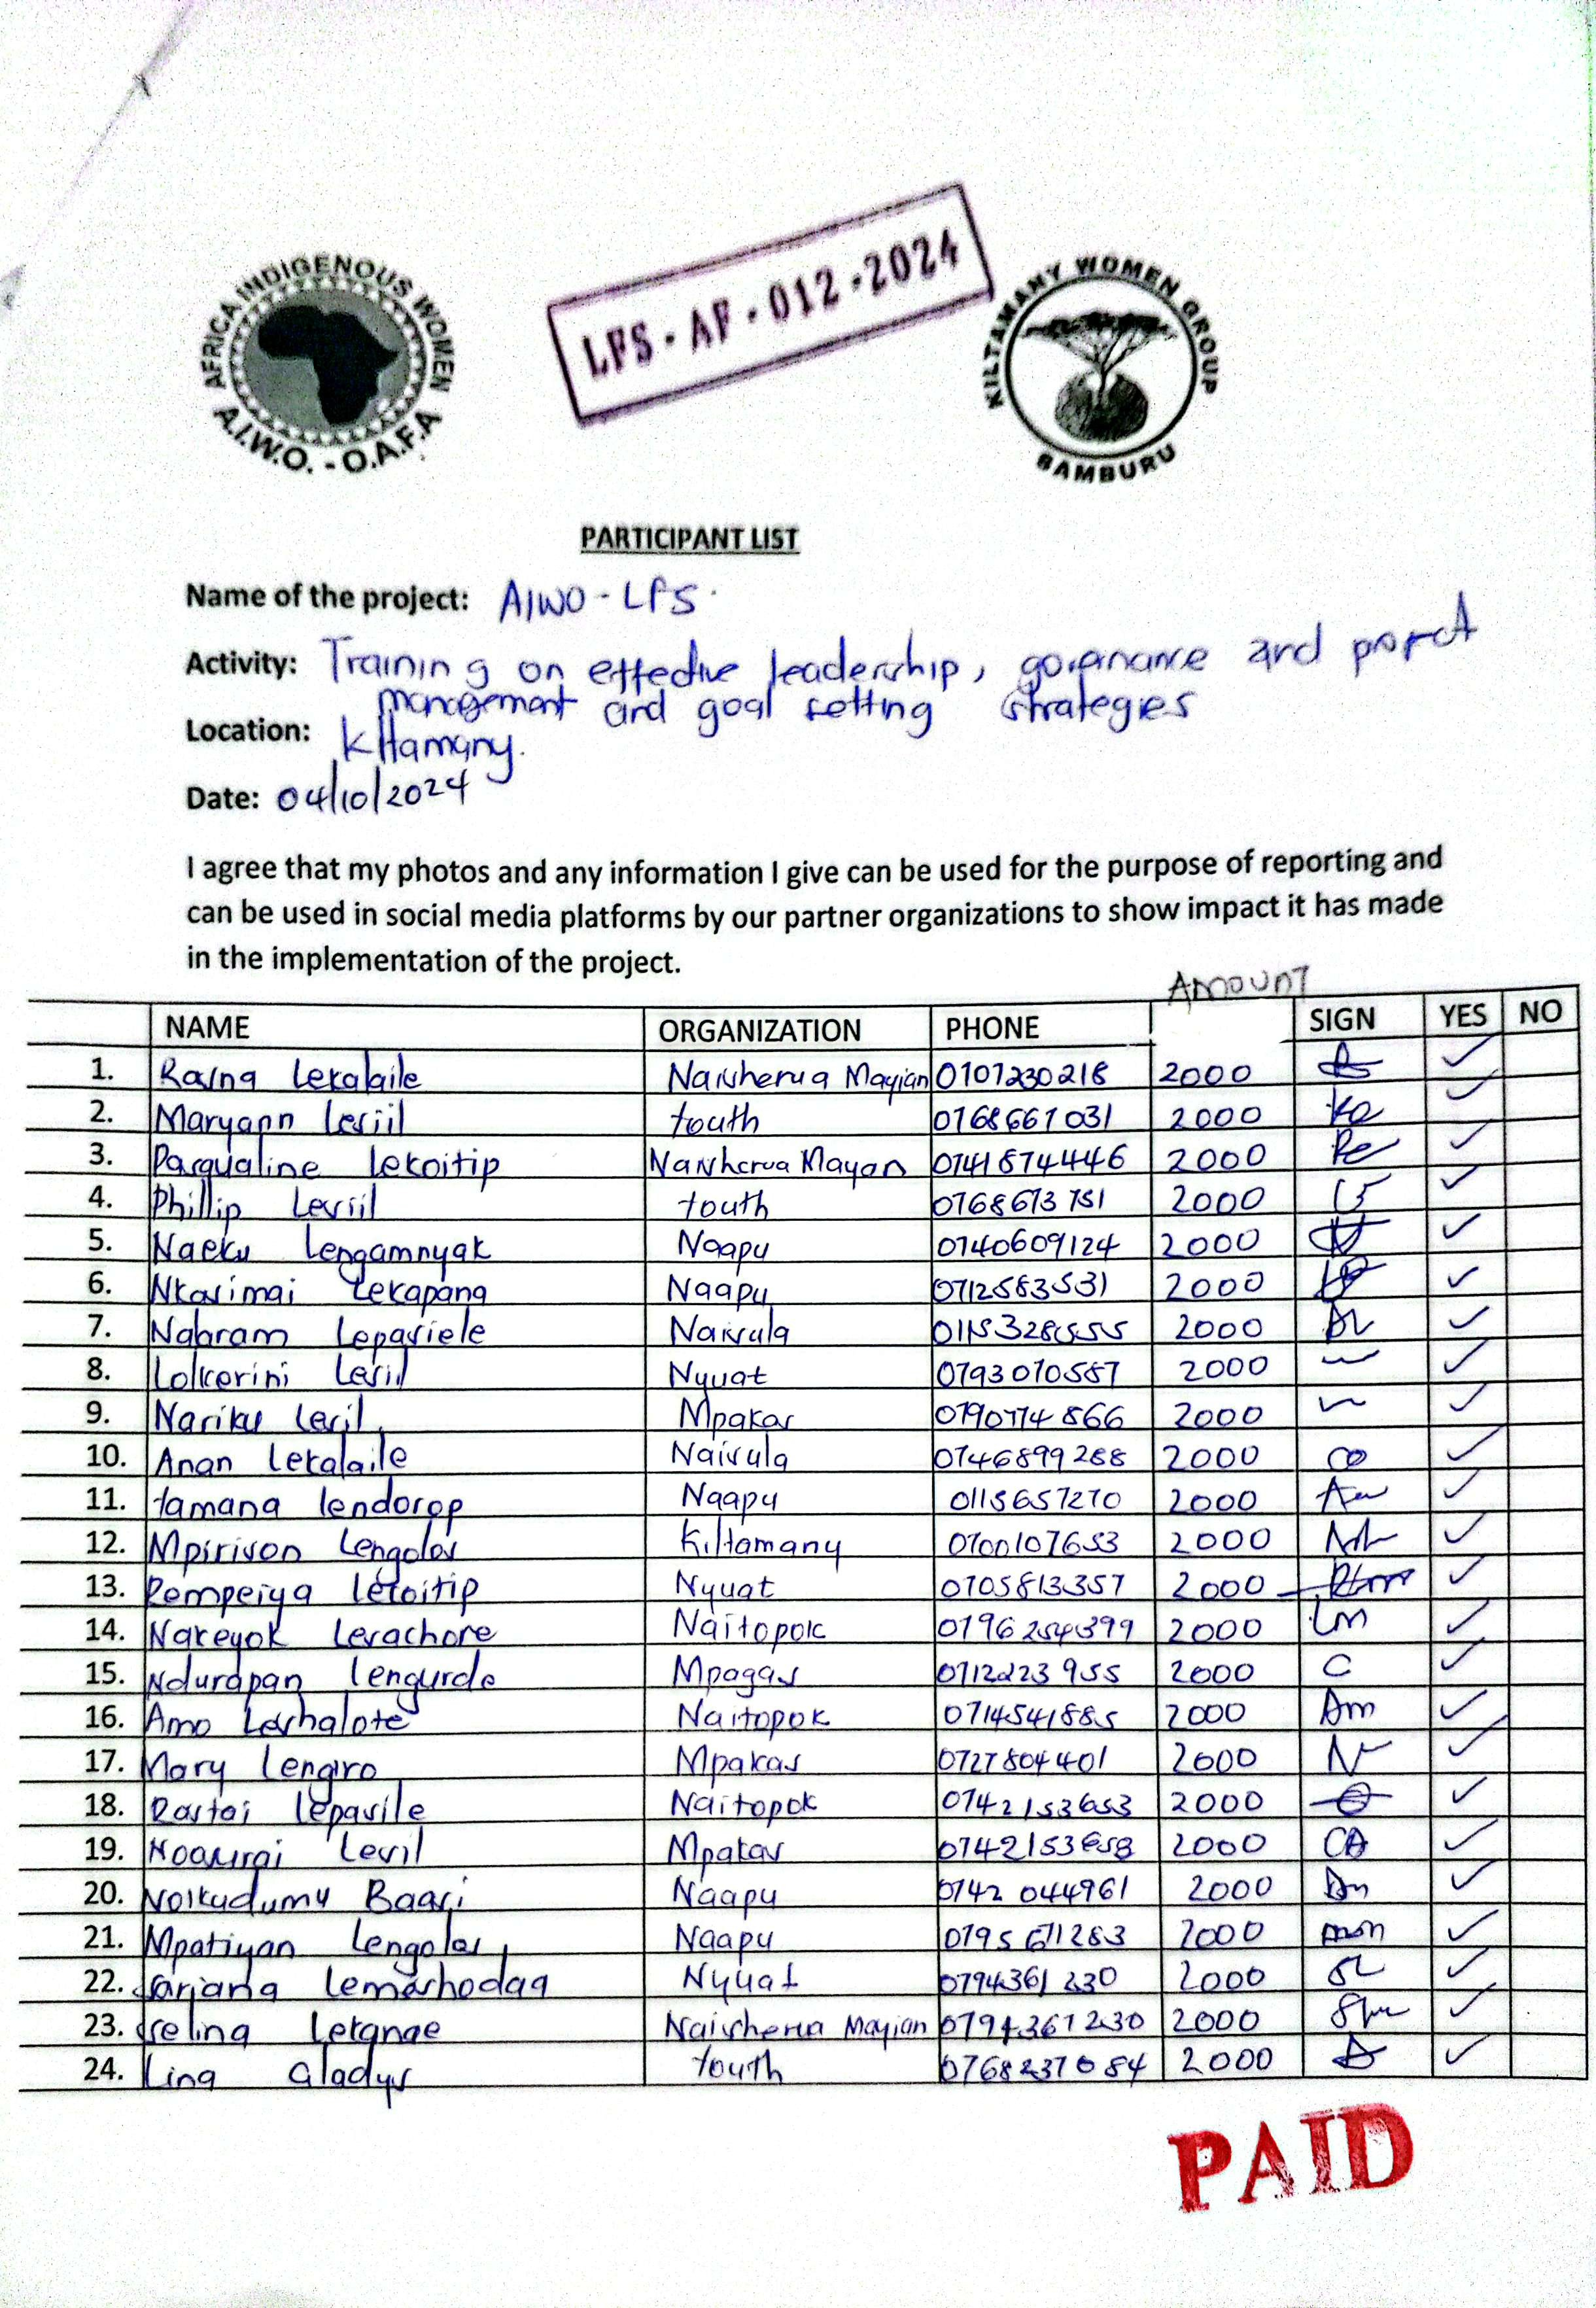 AFRICA INDIGENOUS WOMEN
A.I.W.O. - O.A.F.A
LFS - AF - 012 - 2024
KILTAMANY WOMEN GROUP
BAMBURU
PARTICIPANT LIST
Name of the project: AIWO - LFS.
Activity: Training on effective leadership, governance and project
management and goal setting strategies
Location: Kiltamany.
Date: 04/10/2024
I agree that my photos and any information I give can be used for the purpose of reporting and
can be used in social media platforms by our partner organizations to show impact it has made
in the implementation of the project.
AMOUNT
NAME ORGANIZATION PHONE SIGN YES NO
1. Lekalaile Naisherua Mayian 0107230218 2000 ✓
2. Maryann Lesiil Youth 0768661031 2000 ✓
3. Pasqualine Lekoitip Naisherua Mayan 0741874446 2000 ✓
4. Phillip Lesiil Youth 0768673751 2000 ✓
5. Naeku Lengamnyak Naapu 0740609124 2000 ✓
6. Nkasimai Lekapana Naapu 0712583531 2000 ✓
7. Nabram Lepasiele Naisula 0115328555 2000 ✓
8. Lolkerini Lesiil Nyuat 0793070587 2000 ✓
9. Nariku Lesil Mpakas 0790774866 2000 ✓
10. Anan Lekalaile Naisula 0746899288 2000 ✓
11. Tamana lendorop Naapu 0115657270 2000 ✓
12. Mpirison Lengolos Kiltamany 0700107653 2000 ✓
13. Rempeiya Lekoitip Nyuat 0705813357 2000 ✓
14. Nakeyok Lesachore Naitopok 0796254399 2000 Lm ✓
15. Ndurapan Lengurde Mpagas 0712223955 2000 C ✓
16. Amo Leshalote Naitopok 0714541885 2000 Am ✓
17. Mary Lengiro Mpakas 0727804401 2000 ✓
18. Rastoi Lepasile Naitopok 0742153653 2000 ✓
19. Lesil Mpakas 0742153658 2000 ✓
20. Noikudumu Baasi Naapu 0742 044961 2000 ✓
21. Mpatiyan Lengolos Naapu 0795671283 2000 ✓
22. Sarjana Lemashodaa Nyuat 0794361230 2000 SL ✓
23. Selina Lekanae Naisherua Mayian 0794361230 2000 ✓
24. Lina Gladys Youth 0768237084 2000 ✓
PAID